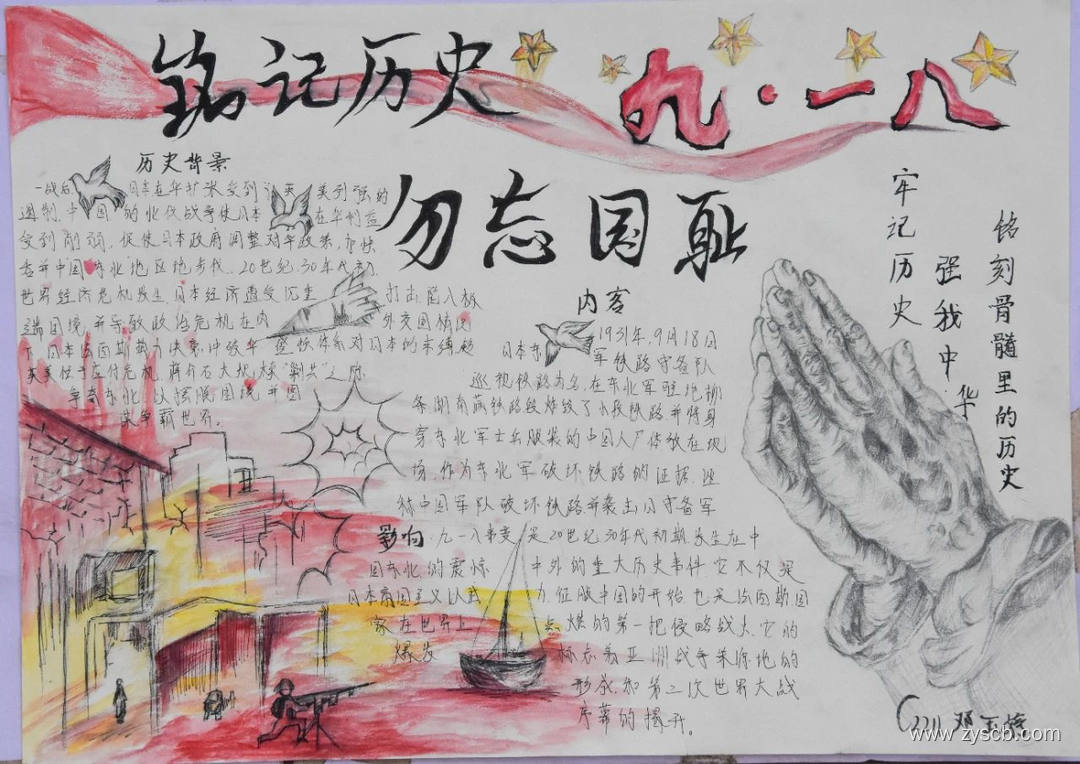 铭记历史
九·一八
勿忘国耻
历史背景
一战后 日本在华扩张受到 英 美列强的
遏制 中国 的北伐战争使日本 在华利益
受到削弱，促使日本政府调整对华政策，加快
吞并中国东北地区地步伐。20世纪30年代初
世界经济危机发生 日本经济遭受沉重 打击陷入极
端困境，并导致政治危机在内 外交困情况
下 日本法西斯势力决意冲破华盛顿体系对日本的束缚趁
英美 忙于应付危机，蒋介石大规模"剿共"之际
争夺东北 以摆脱困境 并图
谋争霸世界。
内容
1931年9月18日
日本东 军铁路守备队
巡视铁路为名，在东北军驻地柳
条湖南满铁路段炸毁了小段铁路 并将身
穿东北军士兵服装的中国人尸体放在现
场，作为东北军破坏铁路的证据，诬
称中国军队破坏铁路并袭击日守备军
影响：九一八事变 是20世纪30年代初期发生在中
国东北的震惊 中外的重大历史事件 它不仅是
日本帝国主义以武 力征服中国的开始 也是法西斯国
家在世界上 点燃的第一把侵略战火，它的
爆发 标志着亚洲战争策源地的
形成和第二次世界大战
序幕的揭开。
牢记历史
强我中华
铭刻骨髓里的历史
C2211 邓玉
www.zyscb.com